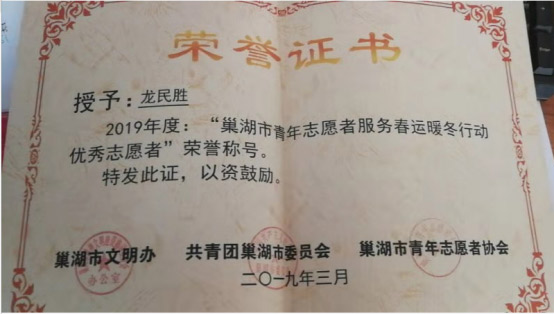 荣誉证书
授予：龙民胜
2019年度：“巢湖市青年志愿者服务春运暖冬行动
优秀志愿者”荣誉称号。
特发此证，以资鼓励。
巢湖市文明办 共青团巢湖市委员会 巢湖市青年志愿者协会
二〇一九年三月